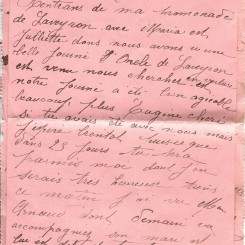 Rentrans de ma promenade
de Laveyron avec Maria et
Juliette dons nous avons u une
belle journé l'Oncle de Laveyron
est venu nous chercher en voiture
notre journé a été bien agréable
beaucoup plus Eugène chéri
si tu avais été avec nous mais
j'espère bientot puisque
dans 23 jours tu sera
parmis moi dont j'en
serais tres heureuse
ce matin j'ai vu
Arnaud dont Demain va
accompagner son mari